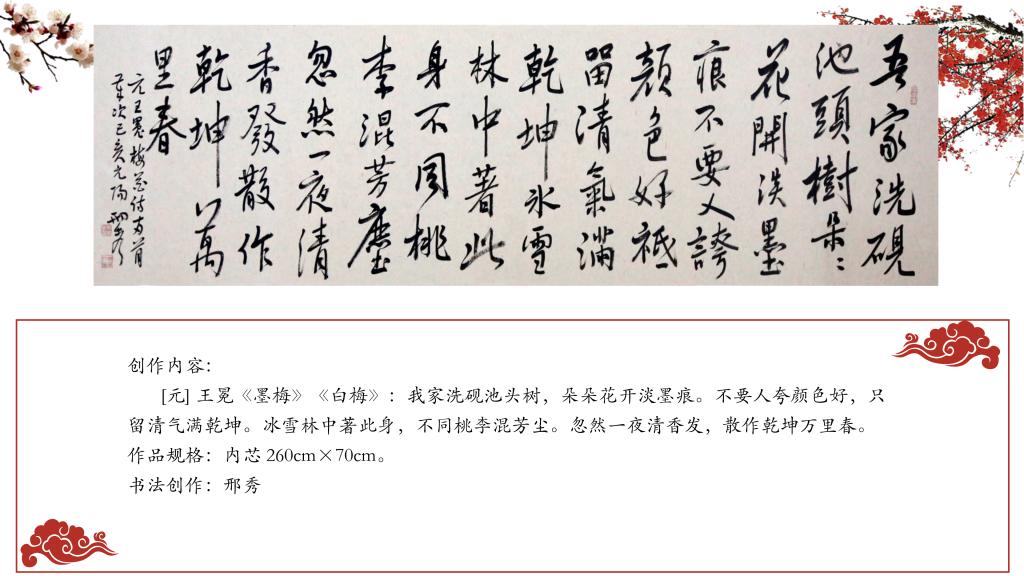 吾家洗硯
池頭樹朵〻
花開淡墨
痕不要人誇
顏色好祗
留清氣滿
乾坤冰雪
林中著此
身不同桃
李混芳塵
忽然一夜清
香發散作
乾坤萬
里春
元王冕梅花詩两首
歲次己亥
创作内容：
[元] 王冕《墨梅》《白梅》：我家洗砚池头树，朵朵花开淡墨痕。不要人夸颜色好，只
留清气满乾坤。冰雪林中著此身，不同桃李混芳尘。忽然一夜清香发，散作乾坤万里春。
作品规格：内芯 260cm×70cm。
书法创作：邢秀